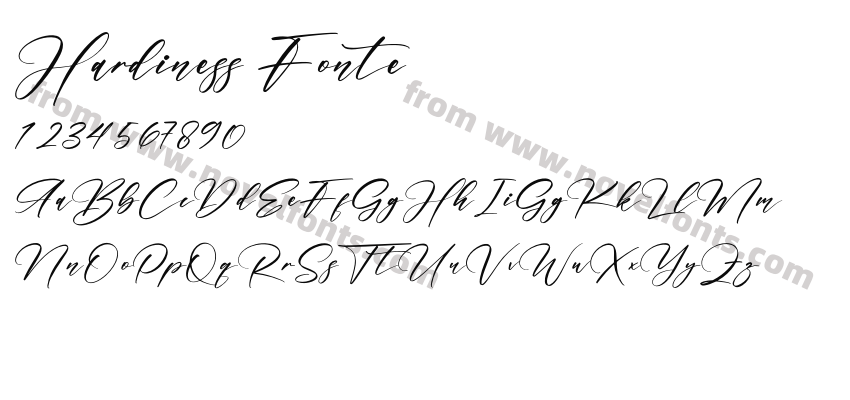 Hardiness Fonte
1234567890
AaBbCcDdEeFfGgHhIiGgKkLlMm
NnOoPpQqRrSsTtUuVvWwXxYyZz
from www.novelfonts.com
from www.novelfonts.com